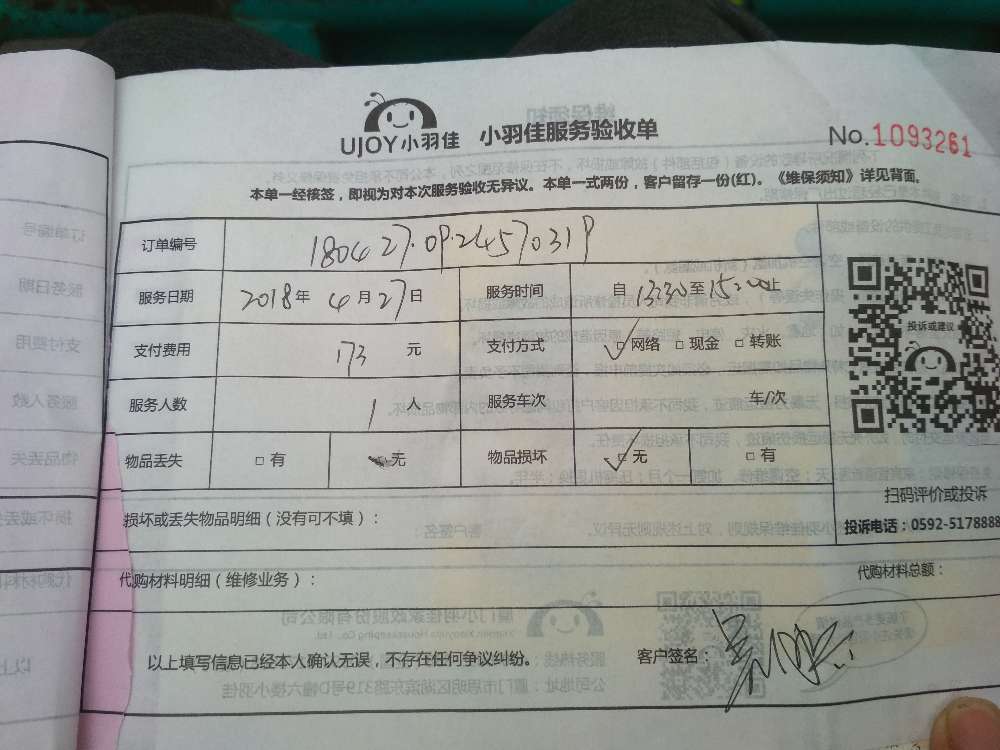 UJOY小羽佳 小羽佳服务验收单 No.1093261
本单一经核签，即视为对本次服务验收无异议。本单一式两份，客户留存一份(红)。《维保须知》详见背面。
订单编号 180427.09245570319
服务日期 2018年4月27日 服务时间 自13:30至15:00止
支付费用 173元 支付方式 ☑网络 □现金 □转账
服务人数 1人 服务车次 车/次
物品丢失 □有 ☑无 物品损坏 ☑无 □有
投诉或建议
扫码评价或投诉
投诉电话：0592-5178888
损坏或丢失物品明细（没有可不填）：
代购材料明细（维修业务）： 代购材料总额：
以上填写信息已经本人确认无误，不存在任何争议纠纷。 客户签名：